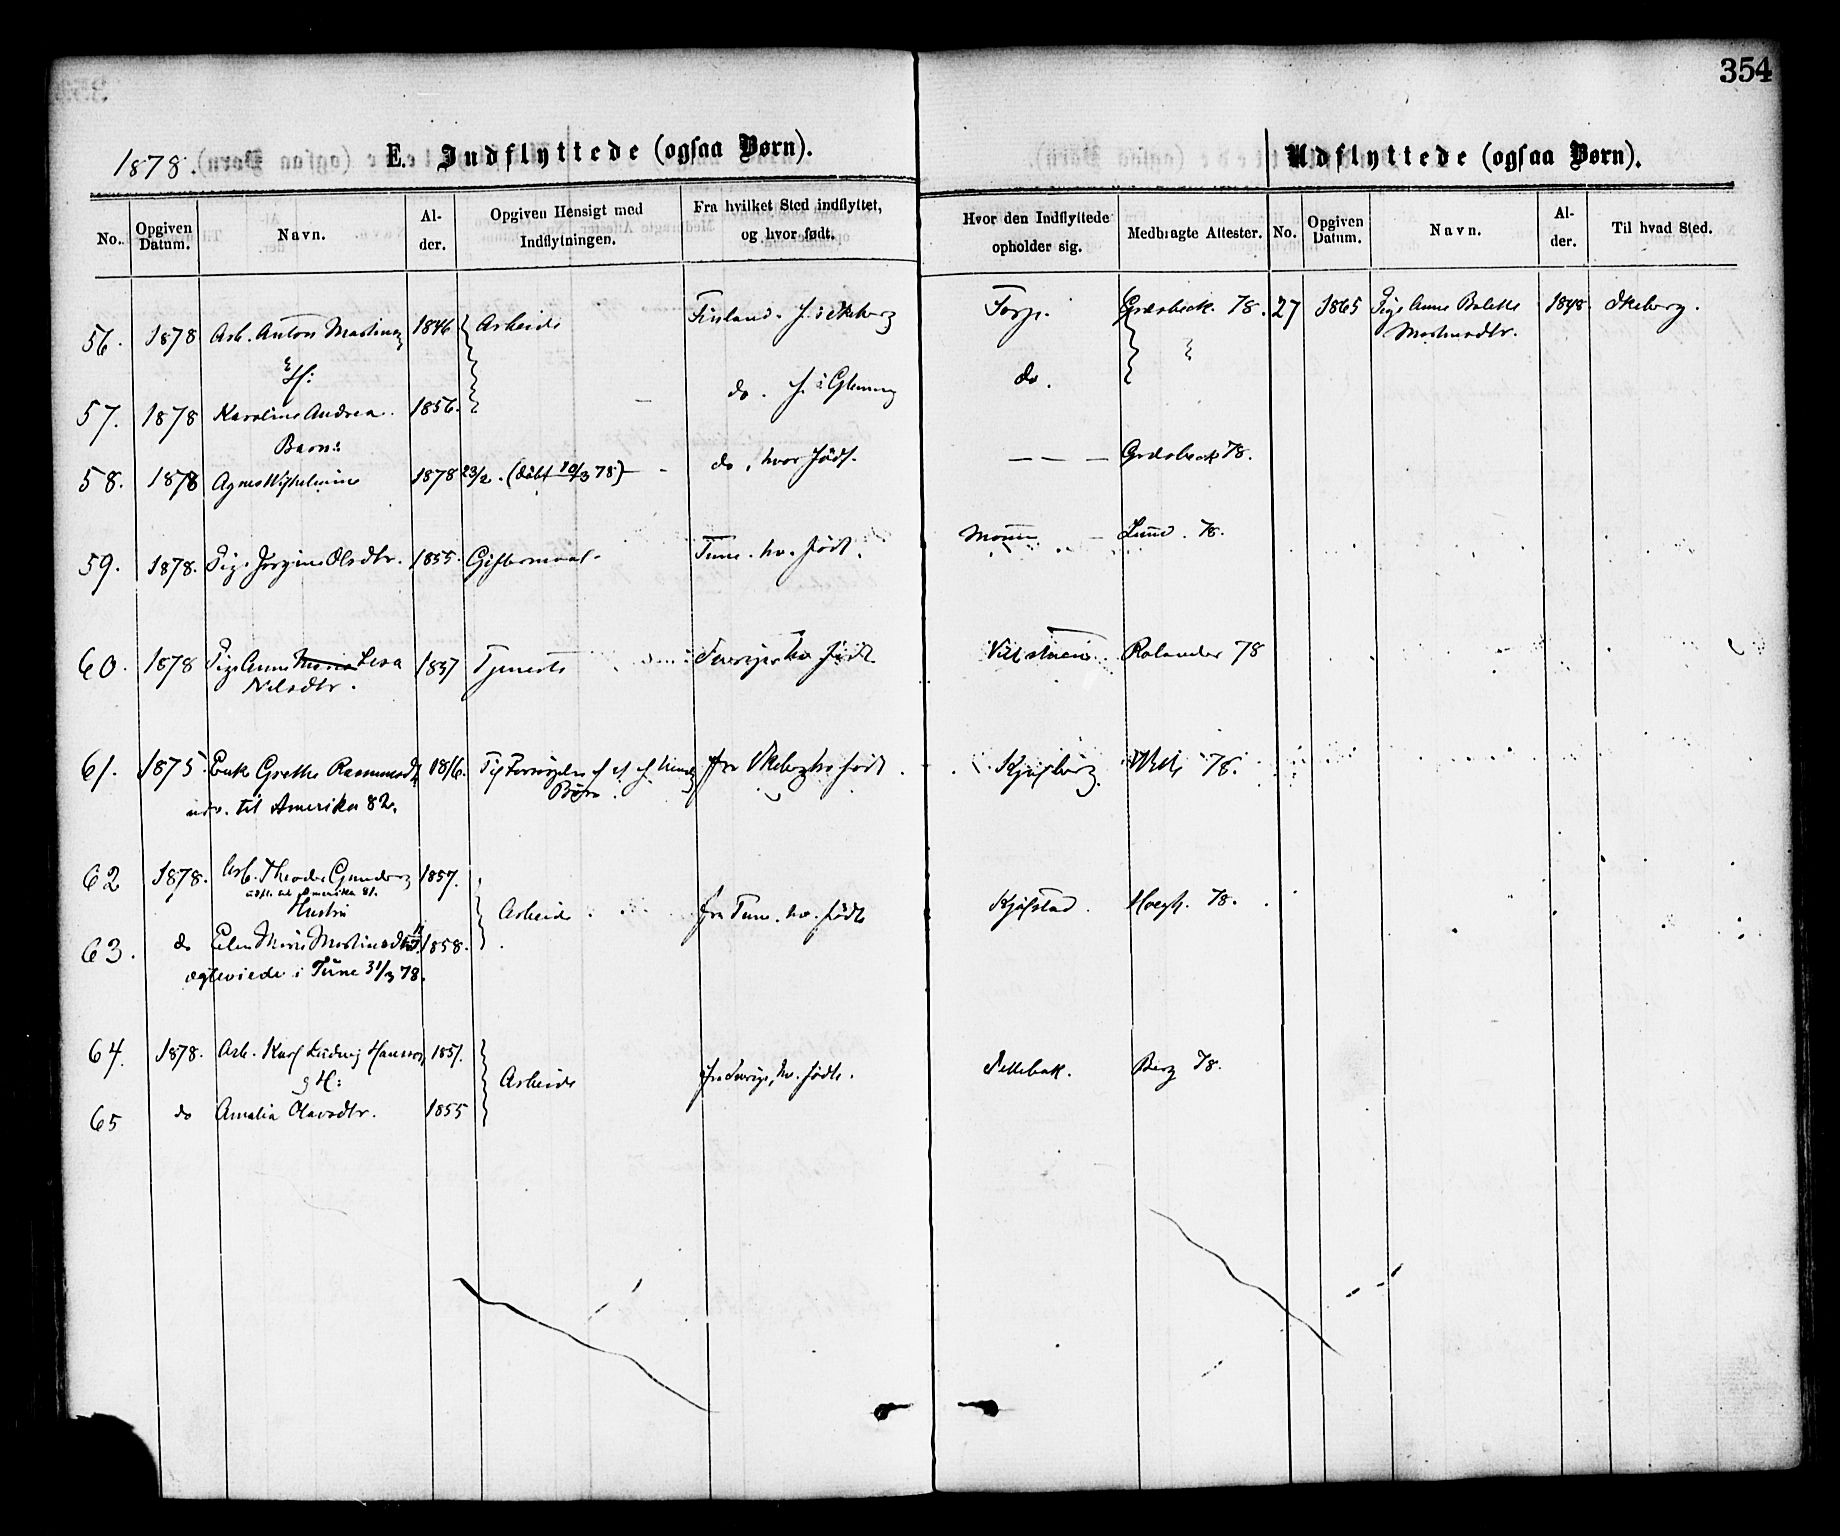 354
1878.
E. Indflyttede (ogsaa Børn).
Udflyttede (ogsaa Børn).
No. Opgiven Datum. Navn. Al-der. Opgiven Hensigt med Indflytningen. Fra hvilket Sted indflyttet, og hvor født. Hvor den Indflyttede opholder sig. Medbragte Attester. No. Opgiven Datum. Navn. Al-der. Til hvad Sted.
56. 1878 Arb. Anton 1846 Arbeide f. i Skeberg Torp. Grædsbeck 78. 27 1865 Pige Anne 1848 Skeberg.
& H:
57. 1878 Karoline Andrea. 1856. do. f. i do.
Barn:
58. 1878 Agnes Wilhelmine 1878 23/2. (døbt 10/3 78) do, hvor født. Grædsbeck 78.
59. 1878. Pige Jorgine Olsdtr. 1855. Giftermaal. Tune. hv. født. Lund. 78.
60. 1878 Pige Anne Lisa 1837 Tjeneste Sverige hv født. Rolander 78
Nilsdtr.
61. 1875. Enke Grethe 1816. fra Skeberg hv født. 78.
udv. til Amerika 82.
62 1878. Arb. Theodor 1857.
Amerika 81.
Hustru
Arbeide fra Tune. hv. født Kjølstad. Høegh. 78.
63. do Elen Marie 1858.
ægteviede i Tune 31/3 78.
64. 1878. Arb. Karl Ludvig Hansen 1851.
& H:
Arbeide fra Sverige, hv. født. Sellebak. Berg 78.
65 do Amalia Olavsdtr. 1855